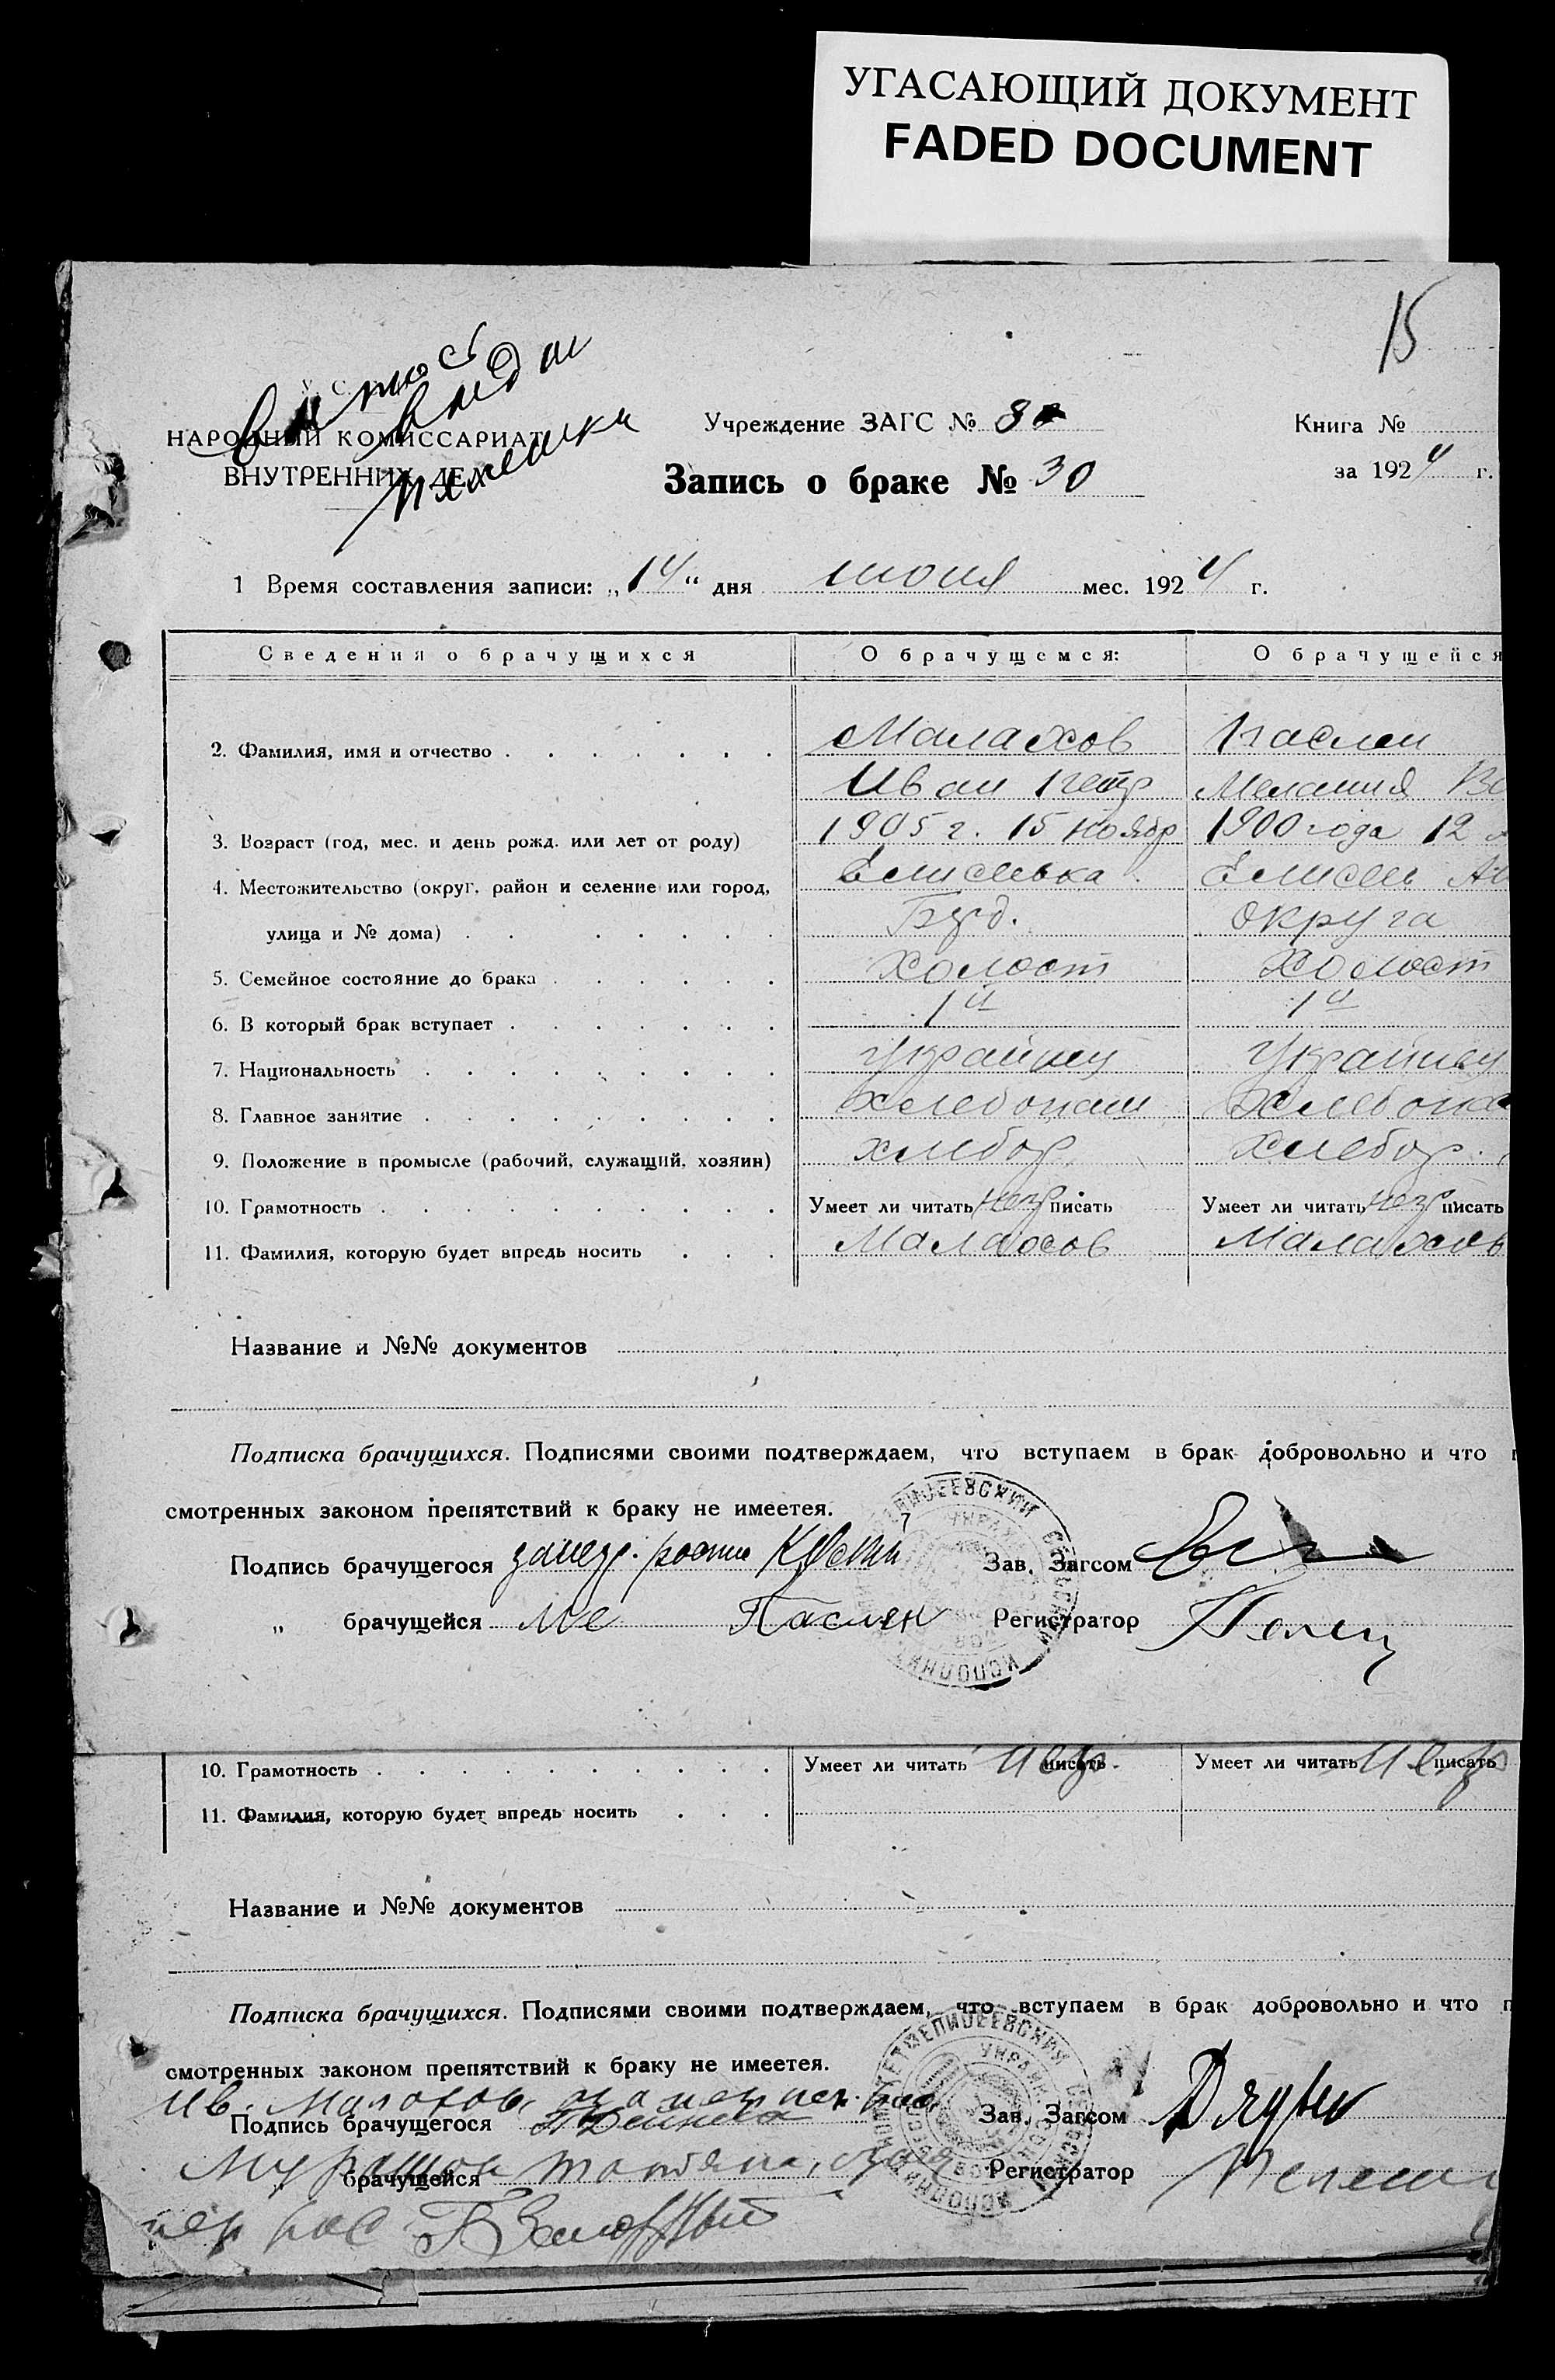 УГАСАЮЩИЙ ДОКУМЕНТ
FADED DOCUMENT
15
У. С.
НАРОДНЫЙ КОМИССАРИАТ
ВНУТРЕННИХ ДЕЛ
Учреждение ЗАГС № 8
Книга №
Запись о браке № 30
за 1924 г.
1 Время составления записи: „14“ дня июня мес. 1924 г.
Сведения о брачущихся
О брачущемся:
О брачущейся
2. Фамилия, имя и отчество . . . . . . . Малахов Паслен
Иван Петр Мелания
3. Возраст (год, мес. и день рожд. или лет от роду) 1905 г. 15 ноябр 1900 года 12
4. Местожительство (округ, район и селение или город, Елисеевка Елисеев
улица и № дома) . . . . . . . Бурд. округа
5. Семейное состояние до брака . . . . . . Холост Холост
6. В который брак вступает . . . . . . . 1й 1й
7. Национальность . . . . . . . . . Украинец Украинец
8. Главное занятие . . . . . . . . . Хлебопаш Хлебопа
9. Положение в промысле (рабочий, служащий, хозяин) хлебор хлебор.
10. Грамотность . . . . . . . . . . Умеет ли читать негр писать Умеет ли читать негр писать
11. Фамилия, которую будет впредь носить . . . Малахов Малахов
Название и №№ документов
Подписка брачущихся. Подписями своими подтверждаем, что вступаем в брак добровольно и что п
смотренных законом препятствий к браку не имеется.
Подпись брачущегося за негр. росп Зав. Загсом
„ брачущейся Ме Паслен Регистратор
10. Грамотность . . . . . . . . . . Умеет ли читать негр. писать Умеет ли читать негр писать
11. Фамилия, которую будет впредь носить . . .
Название и №№ документов
Подписка брачущихся. Подписями своими подтверждаем, что вступаем в брак добровольно и что п
смотренных законом препятствий к браку не имеется.
Ив. Малохов
Подпись брачущегося Зав. Загсом
брачущейся Татьяна Регистратор